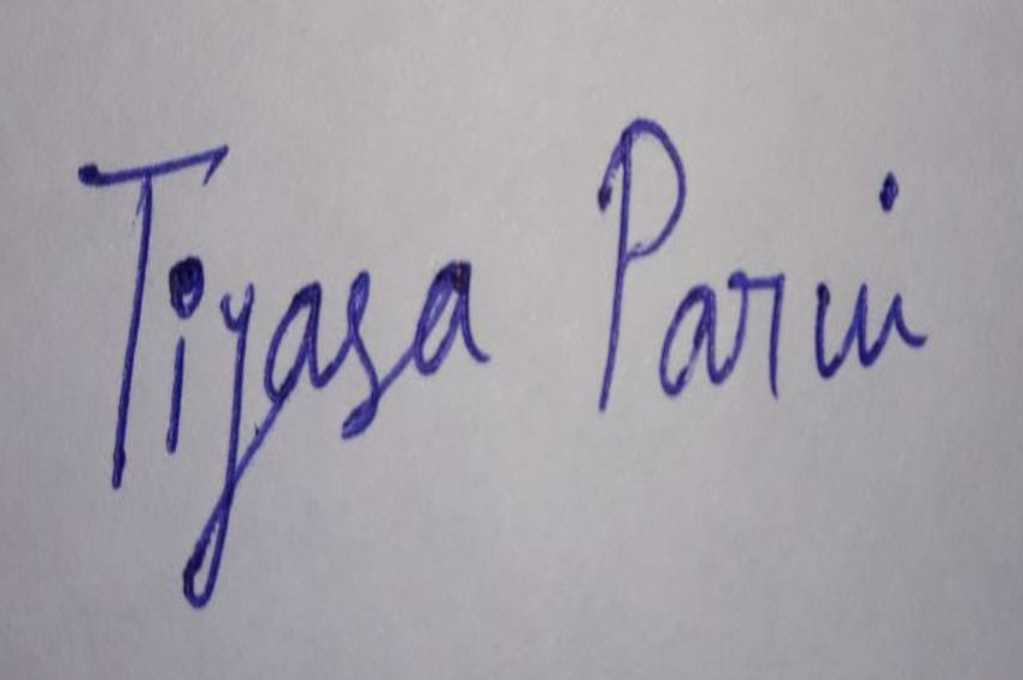 Tiyasa Parui